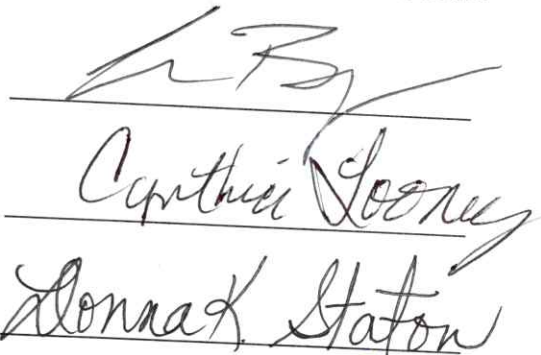 Cynthia Looney
Donna K. Staton